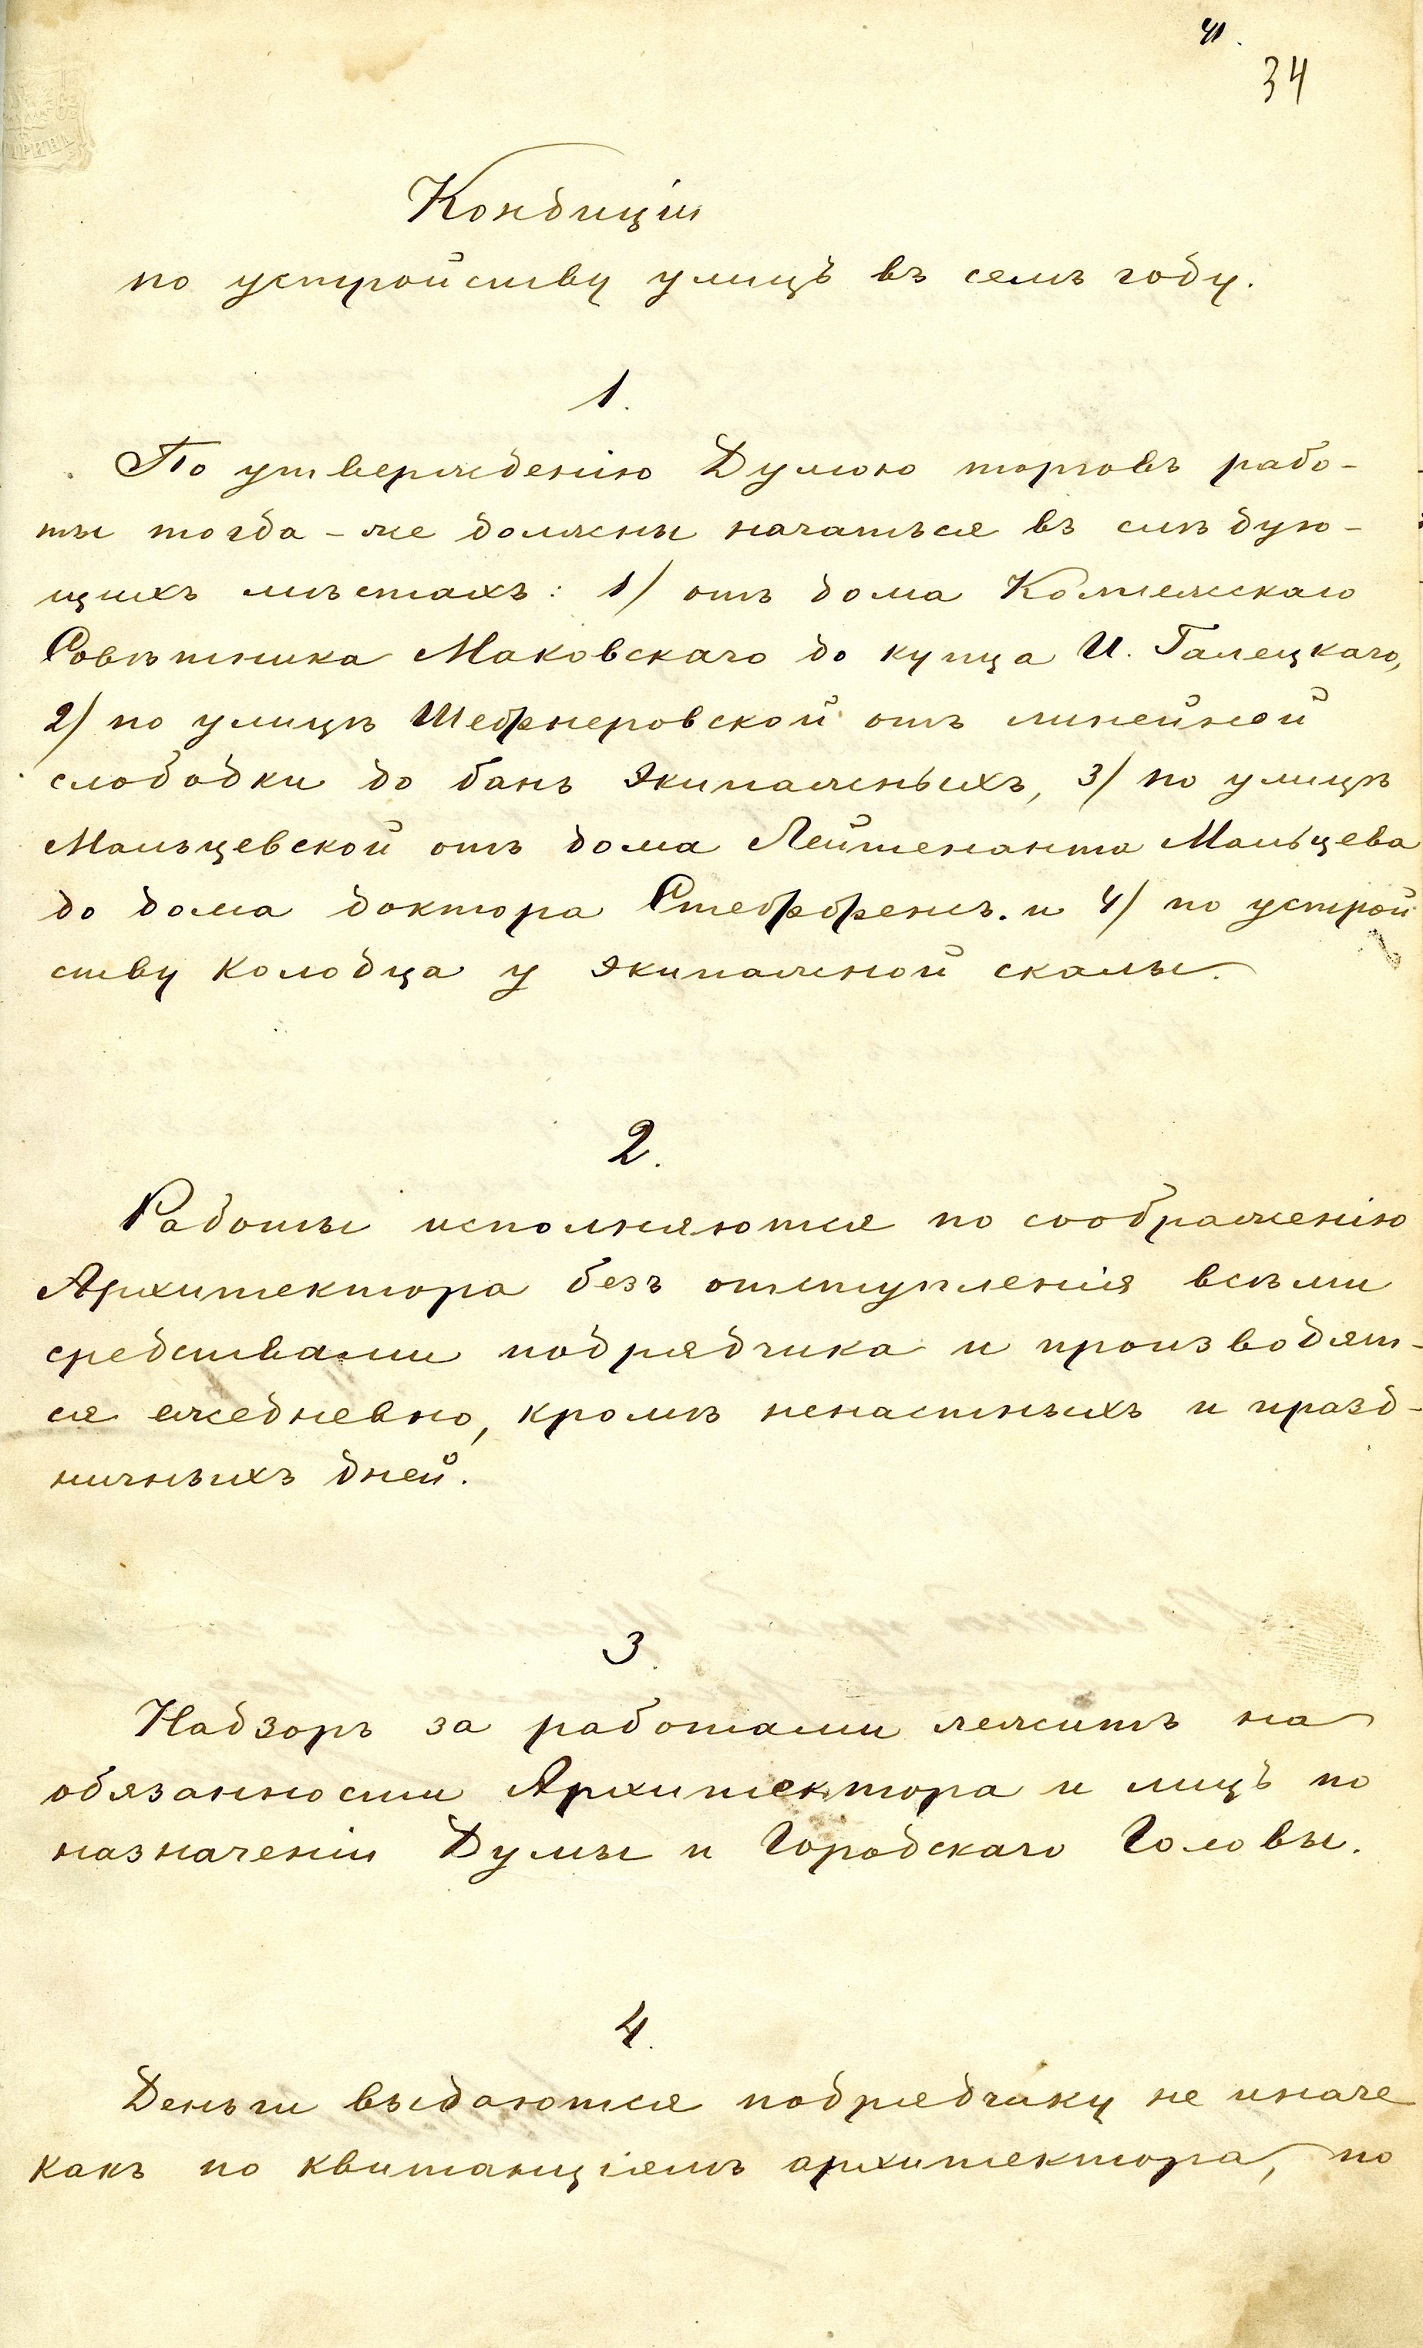 41.
34
Кондиціи
по устройству улицъ въ семъ году.
1.
По утвержденію Думою торговъ рабо-
ты тогда-же должны начаться въ слѣдую-
щихъ мѣстахъ: 1/ отъ дома Коллежскаго
Совѣтника Маковскаго до купца И. Галецкаго,
2/ по улицѣ Шефнеровской отъ линейной
слободки до бань Экипажныхъ, 3/ по улицѣ
Мальцевской отъ дома Лейтенанта Мальцева
до дома доктора Стеффенъ. и 4/ по устрой
ству колодца у экипажной скалы.
2.
Работы исполняются по соображенію
Архитектора безъ отступленія всѣми
средствами подрядчика и производят-
ся ежедневно, кромѣ ненастныхъ и празд-
ничныхъ дней.
3.
Надзоръ за работами лежитъ на
обязанности Архитектора и лицъ по
назначеніи Думы и Городскаго Головы.
4.
Деньги выдаются подрядчику не иначе
какъ по квитанціямъ архитектора, по